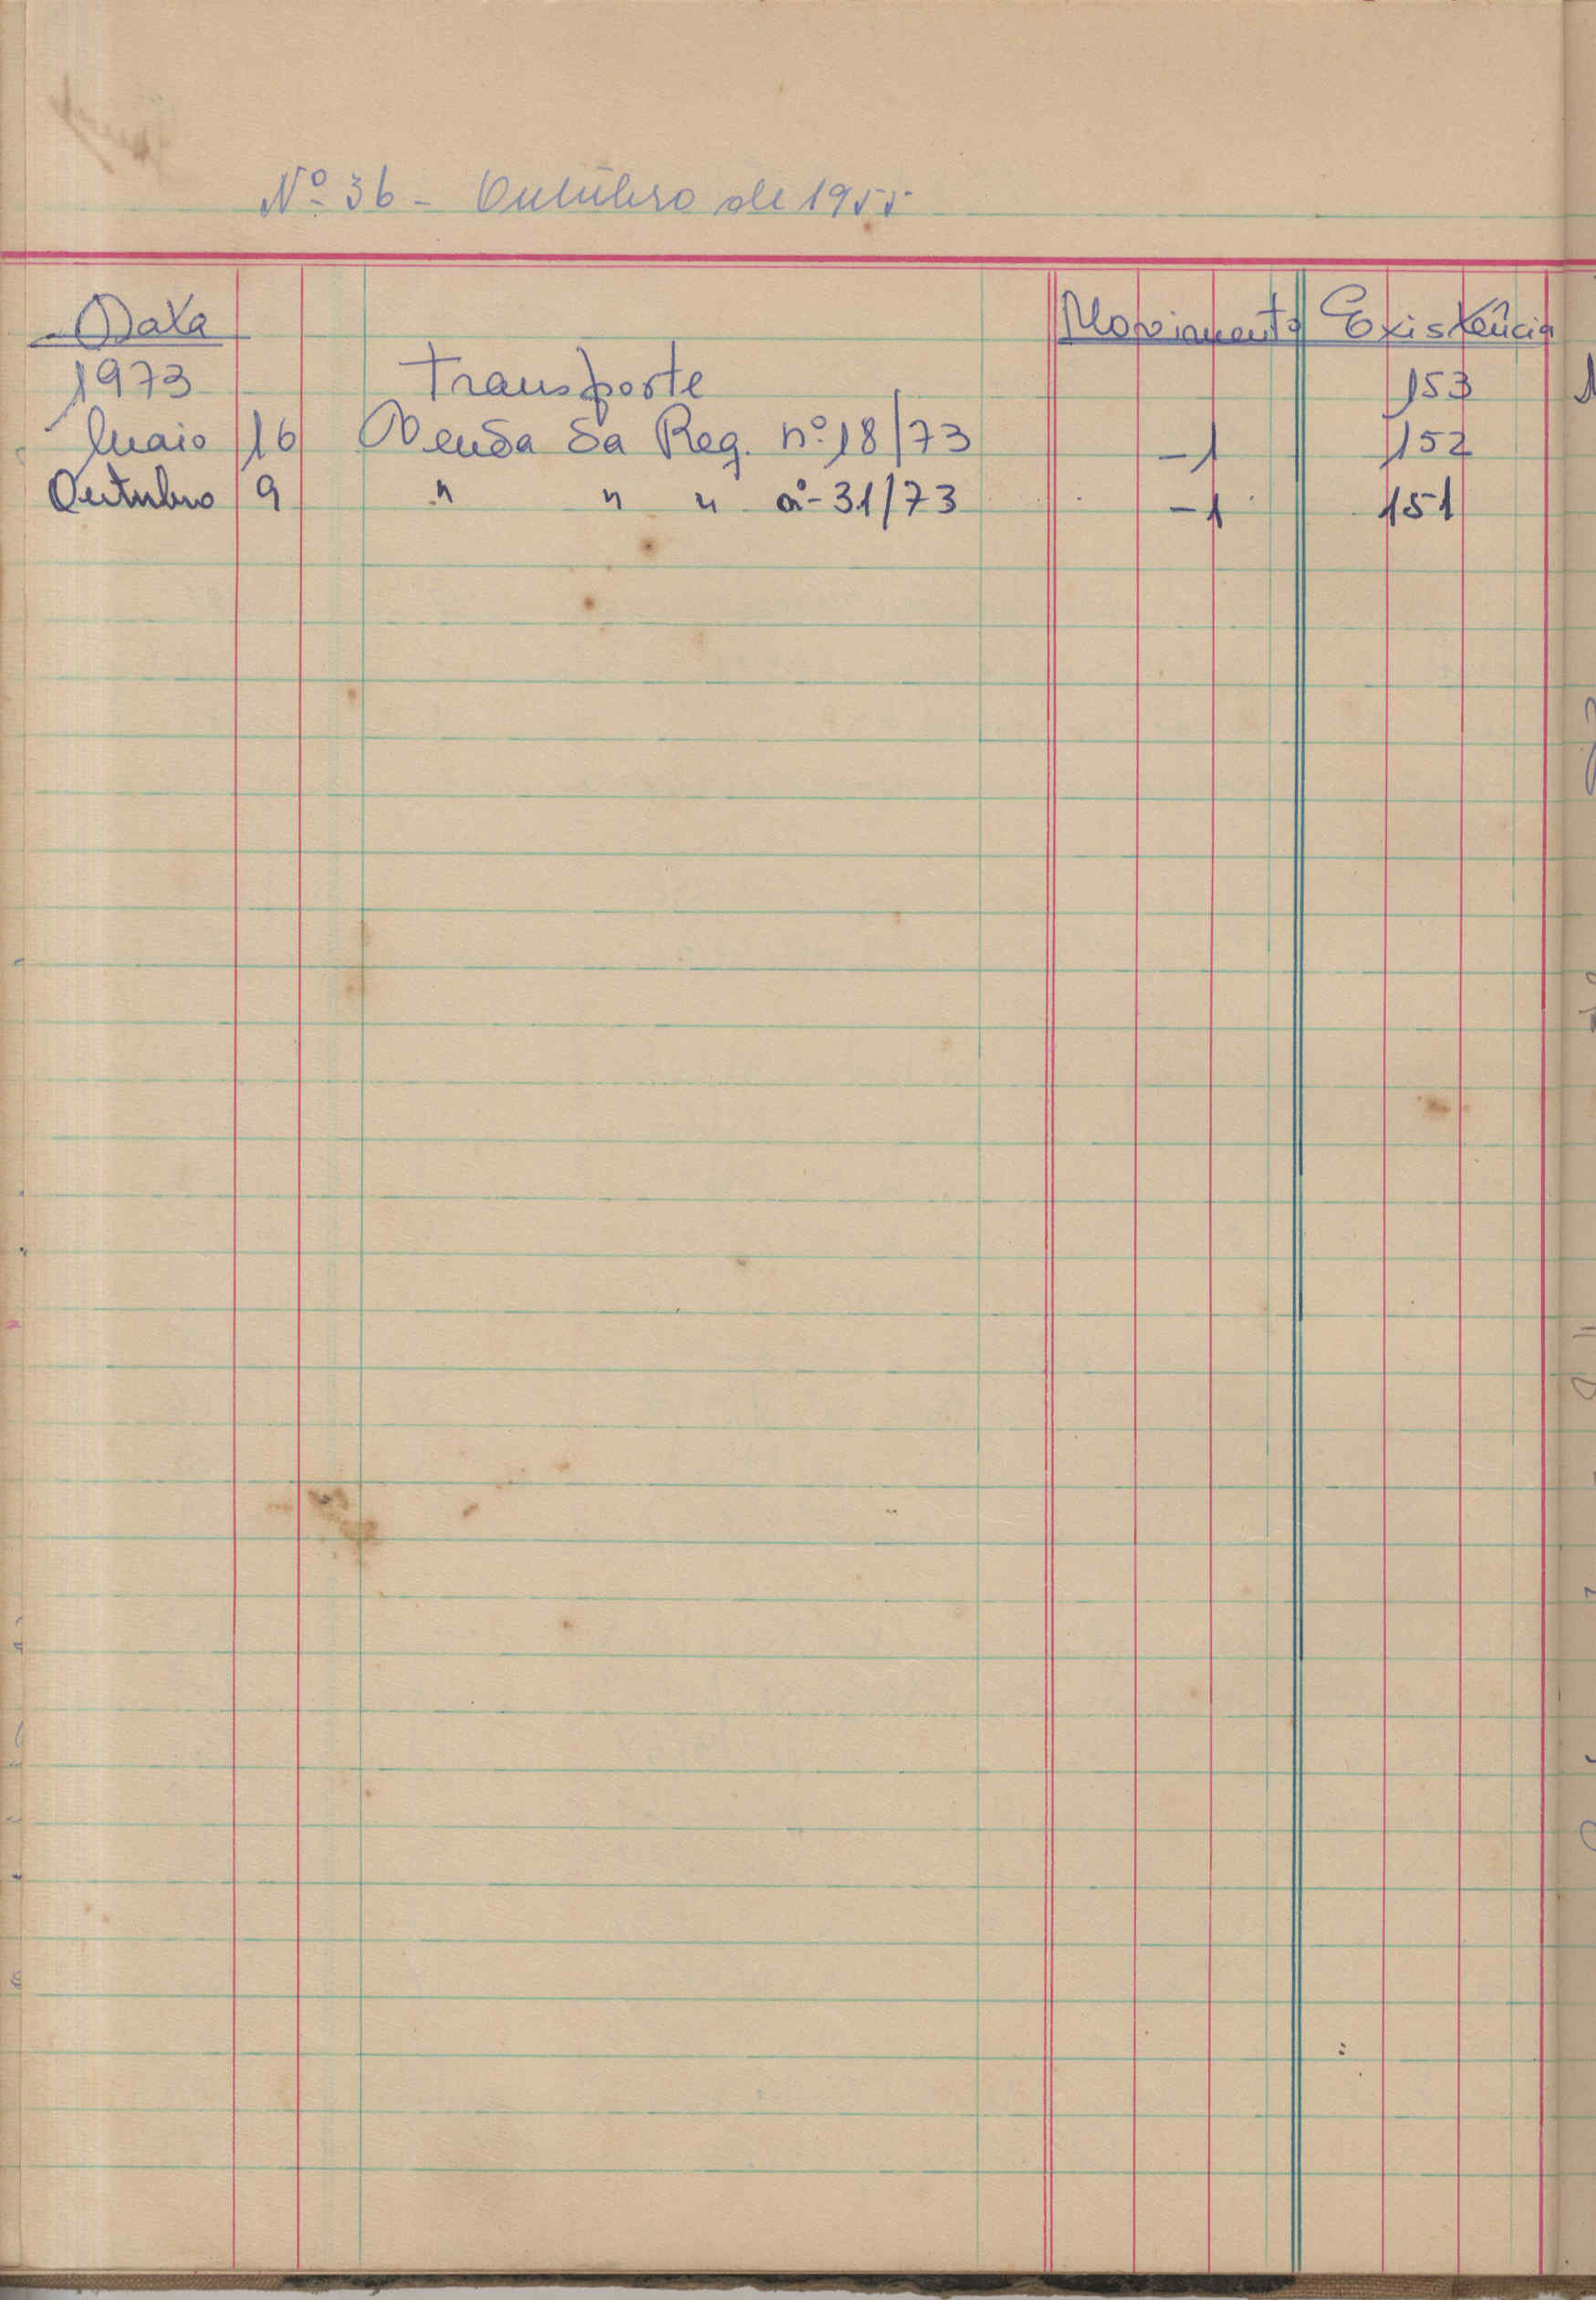 Nº 36 - Outubro de 1955
Data Movimento Existência
1973 Transporte 153
Maio 16 Venda da Reg. nº 18/73 -1 152
Outubro 9 " " " nº 31/73 -1 151